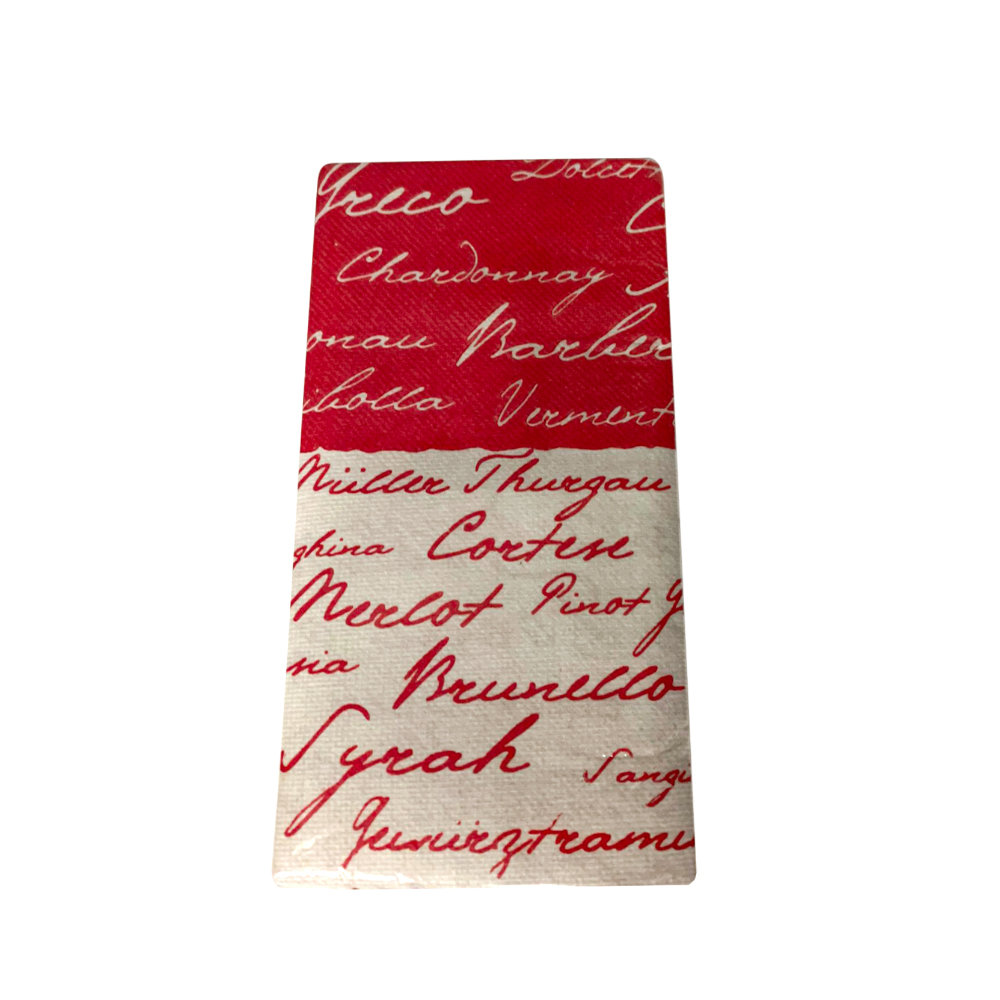 Dolcett
Greco C
Chardonnay
onau Barber
ibolla Verment
Müller Thurgau
ghina Cortese
Merlot Pinot G
sia Brunello
Syrah Sangi
Gewürztrami